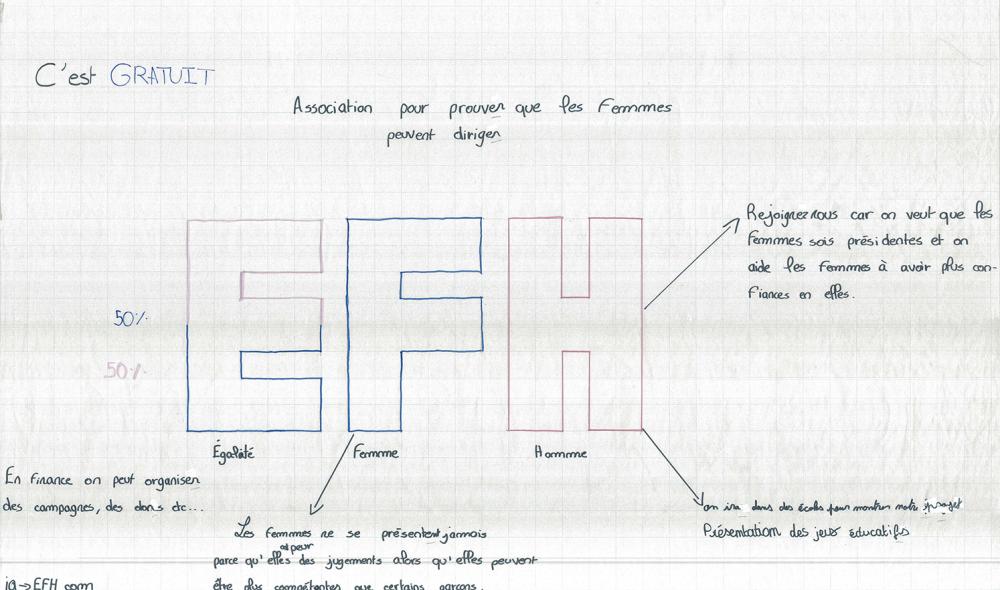 C'est GRATUIT
Association pour prouver que les Femmes
peuvent diriger
EFH
Rejoignez nous car on veut que les
femmes sois présidentes et on
aide les femmes à avoir plus con-
fiances en elles.
50%
50%
Égalité Femme Homme
En finance on peut organiser
des campagnes, des dons etc...
on ira dans des écoles pour montrer notre projet
Présentation des jeux éducatifs
Les femmes ne se présentent jamais
parce qu'elles ont peur des jugements alors qu'elles peuvent
être plus compétentes que certains garçons.
→ EFH com